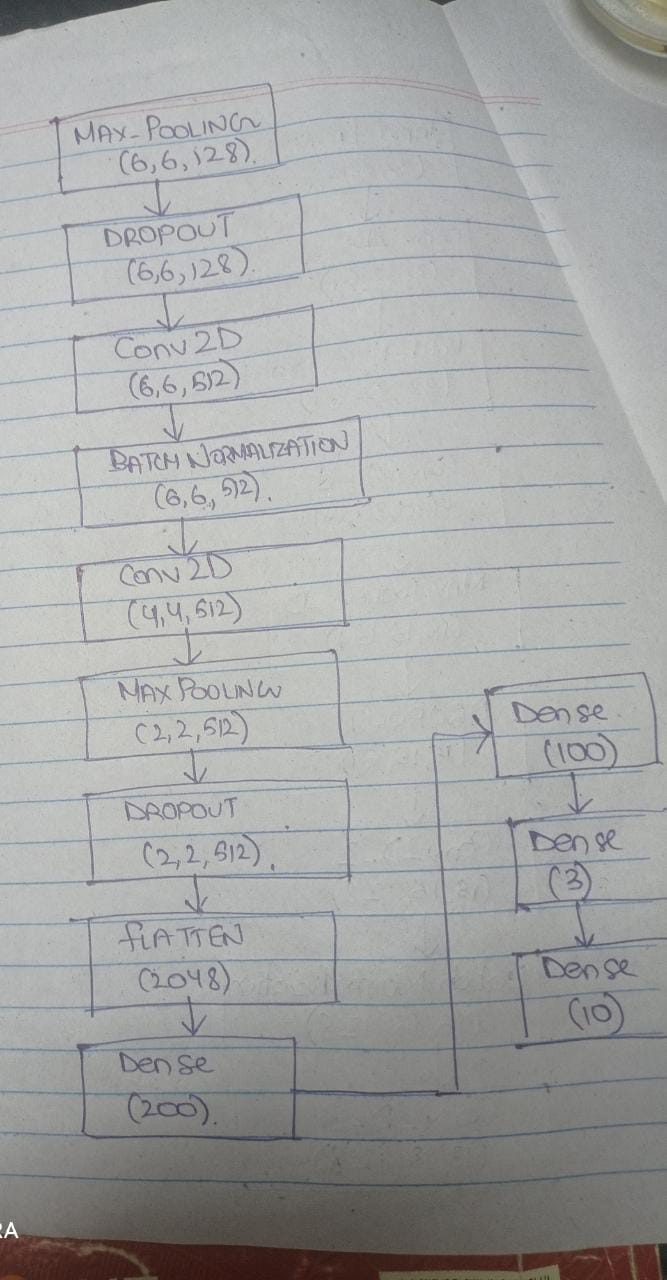 MAX-POOLING
(6,6,128).
DROPOUT
(6,6,128).
Conv2D
(6,6,512)
BATCH NORMALIZATION
(6,6,512).
Conv2D
(4,4,512)
MAX POOLING
(2,2,512)
DROPOUT
(2,2,512).
flATTEN
(2048)
Dense
(200).
Dense
(100)
Dense
(3)
Dense
(10)
RA